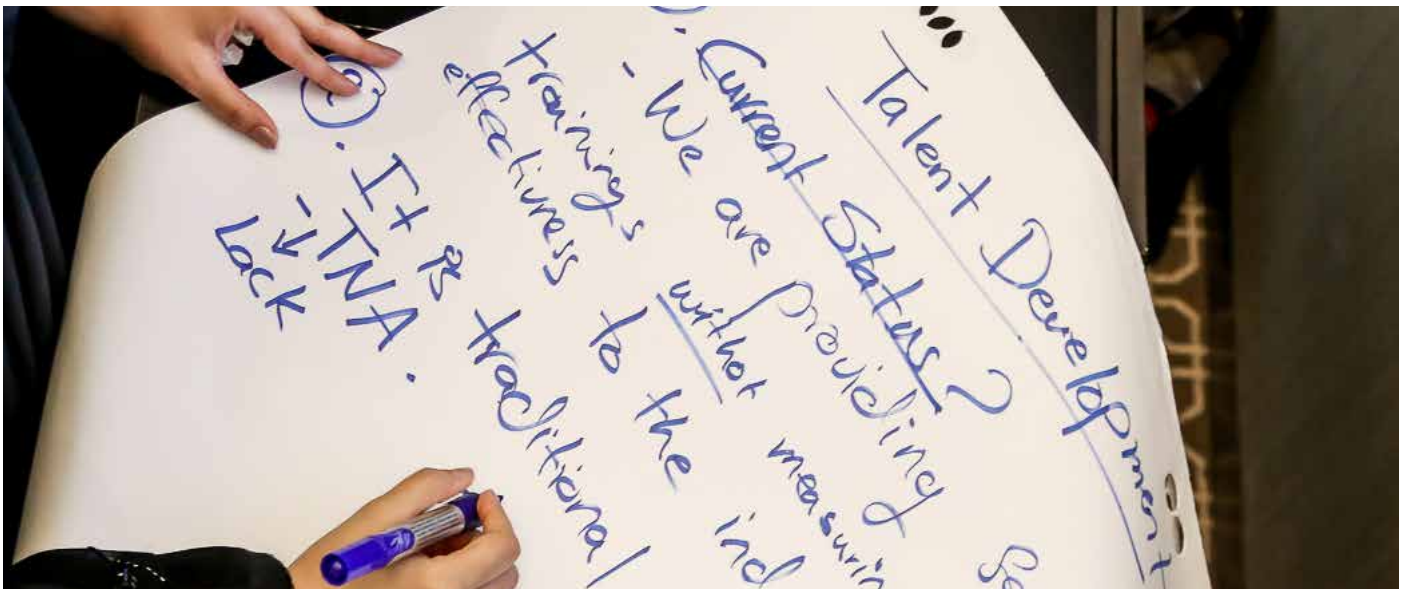 Talent Development
Current Status?
- We are providing
trainings without measurin
effectivness to the ind
It is traditional
- TNA.
↓
Lack